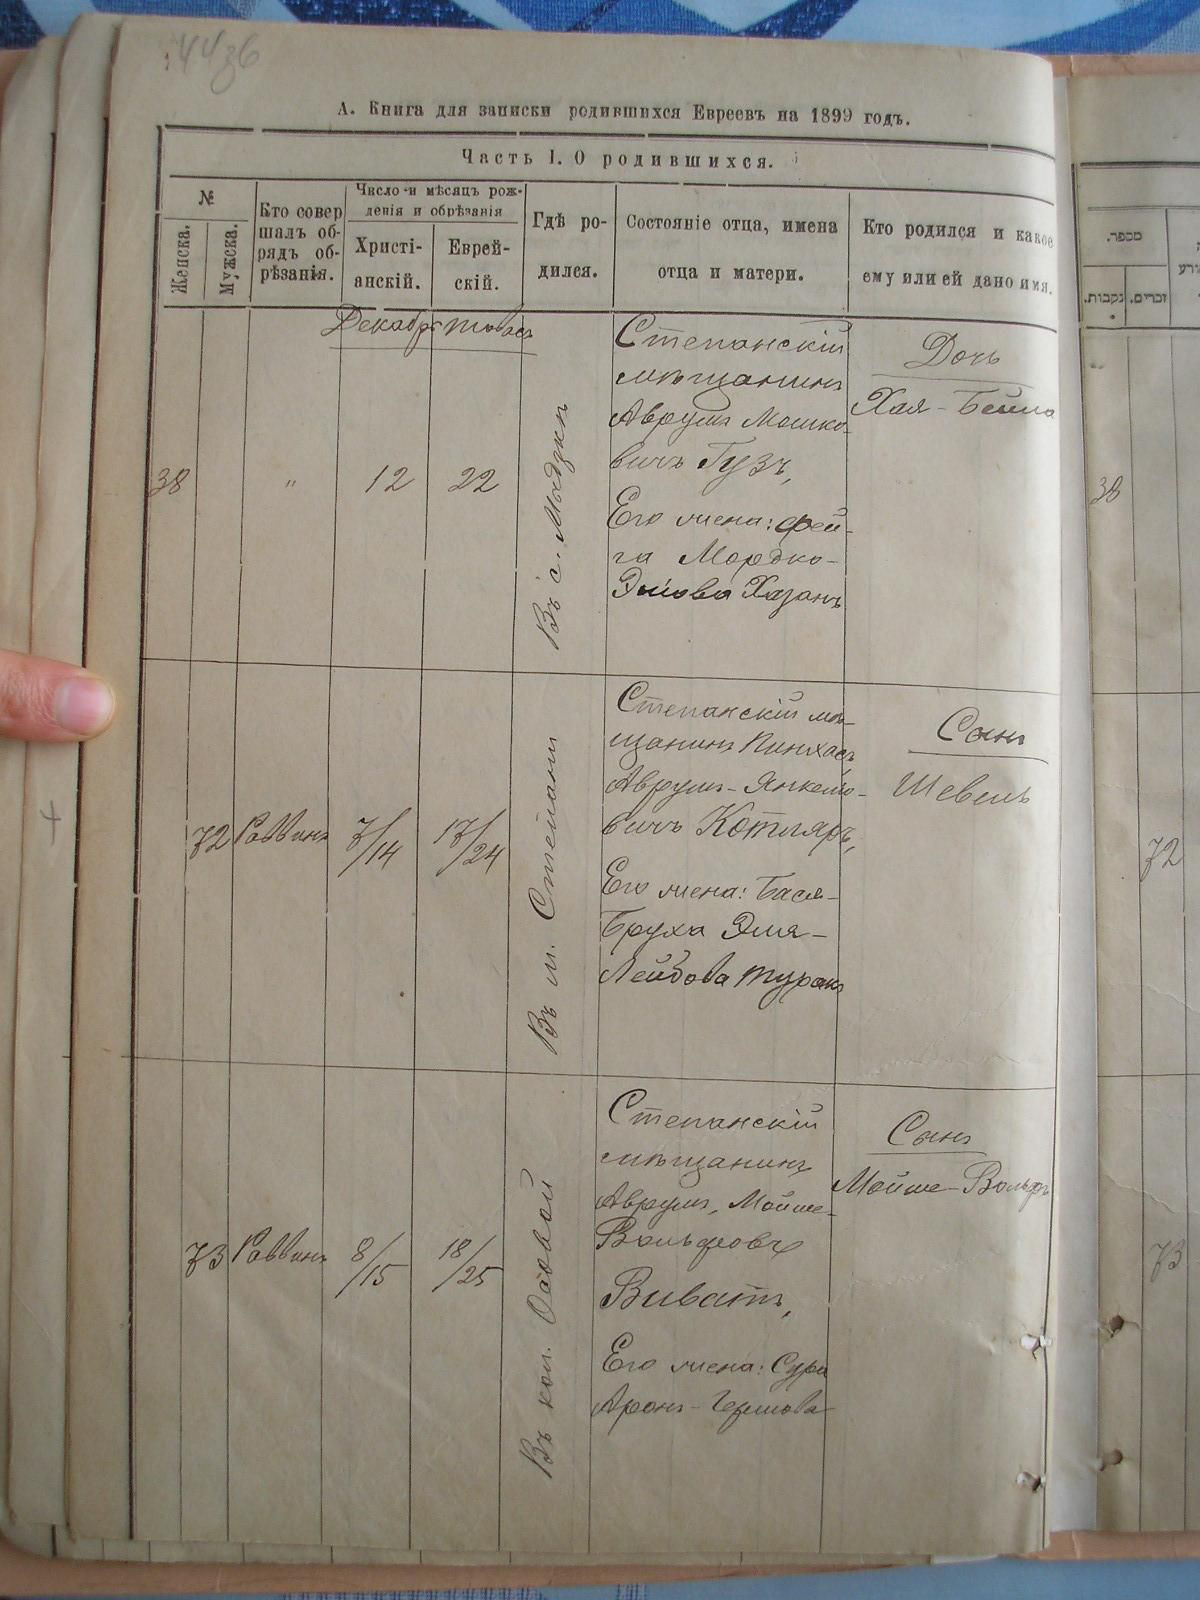 44зб
А. Книга для записки родившихся Евреевъ на 1899 годъ.
Часть I. О родившихся.
№
Женска.
Мужска.
Кто совер
шалъ об-
рядъ об-
рѣзанія.
Число и мѣсяцъ рож-
денія и обрѣзанія
Христі-
анскій.
Еврей-
скій.
Гдѣ ро-
дился.
Состояніе отца, имена
отца и матери.
Кто родился и какое
ему или ей дано имя.
Декабрь
38
"
12
22
Степанскій
мѣщанинъ
Аврумъ Мошко-
вичъ Гузъ,
Его жена: Фей-
га Мордко-
Хазанъ
Дочь
Хая-Бейла
72
Раввинъ
7/14
17/24
Въ м. Степани
Степанскій мѣ-
щанинъ Пинхасъ
Аврумъ-Янкело-
вичъ Котляръ,
Его жена: Бася-
Бруха Эля-
Лейбова Туракъ
Сынъ
Шевель
73
Раввинъ
8/15
18/25
Въ кол. Осовой
Степанскій
мѣщанинъ
Аврумъ, Мойше-
Вольфовъ
Виватъ,
Его жена: Сура
Аронъ-Гершова
Сынъ
Мойше-Вольфъ
מספר.
נקבות.
זכרים.
38
72
73